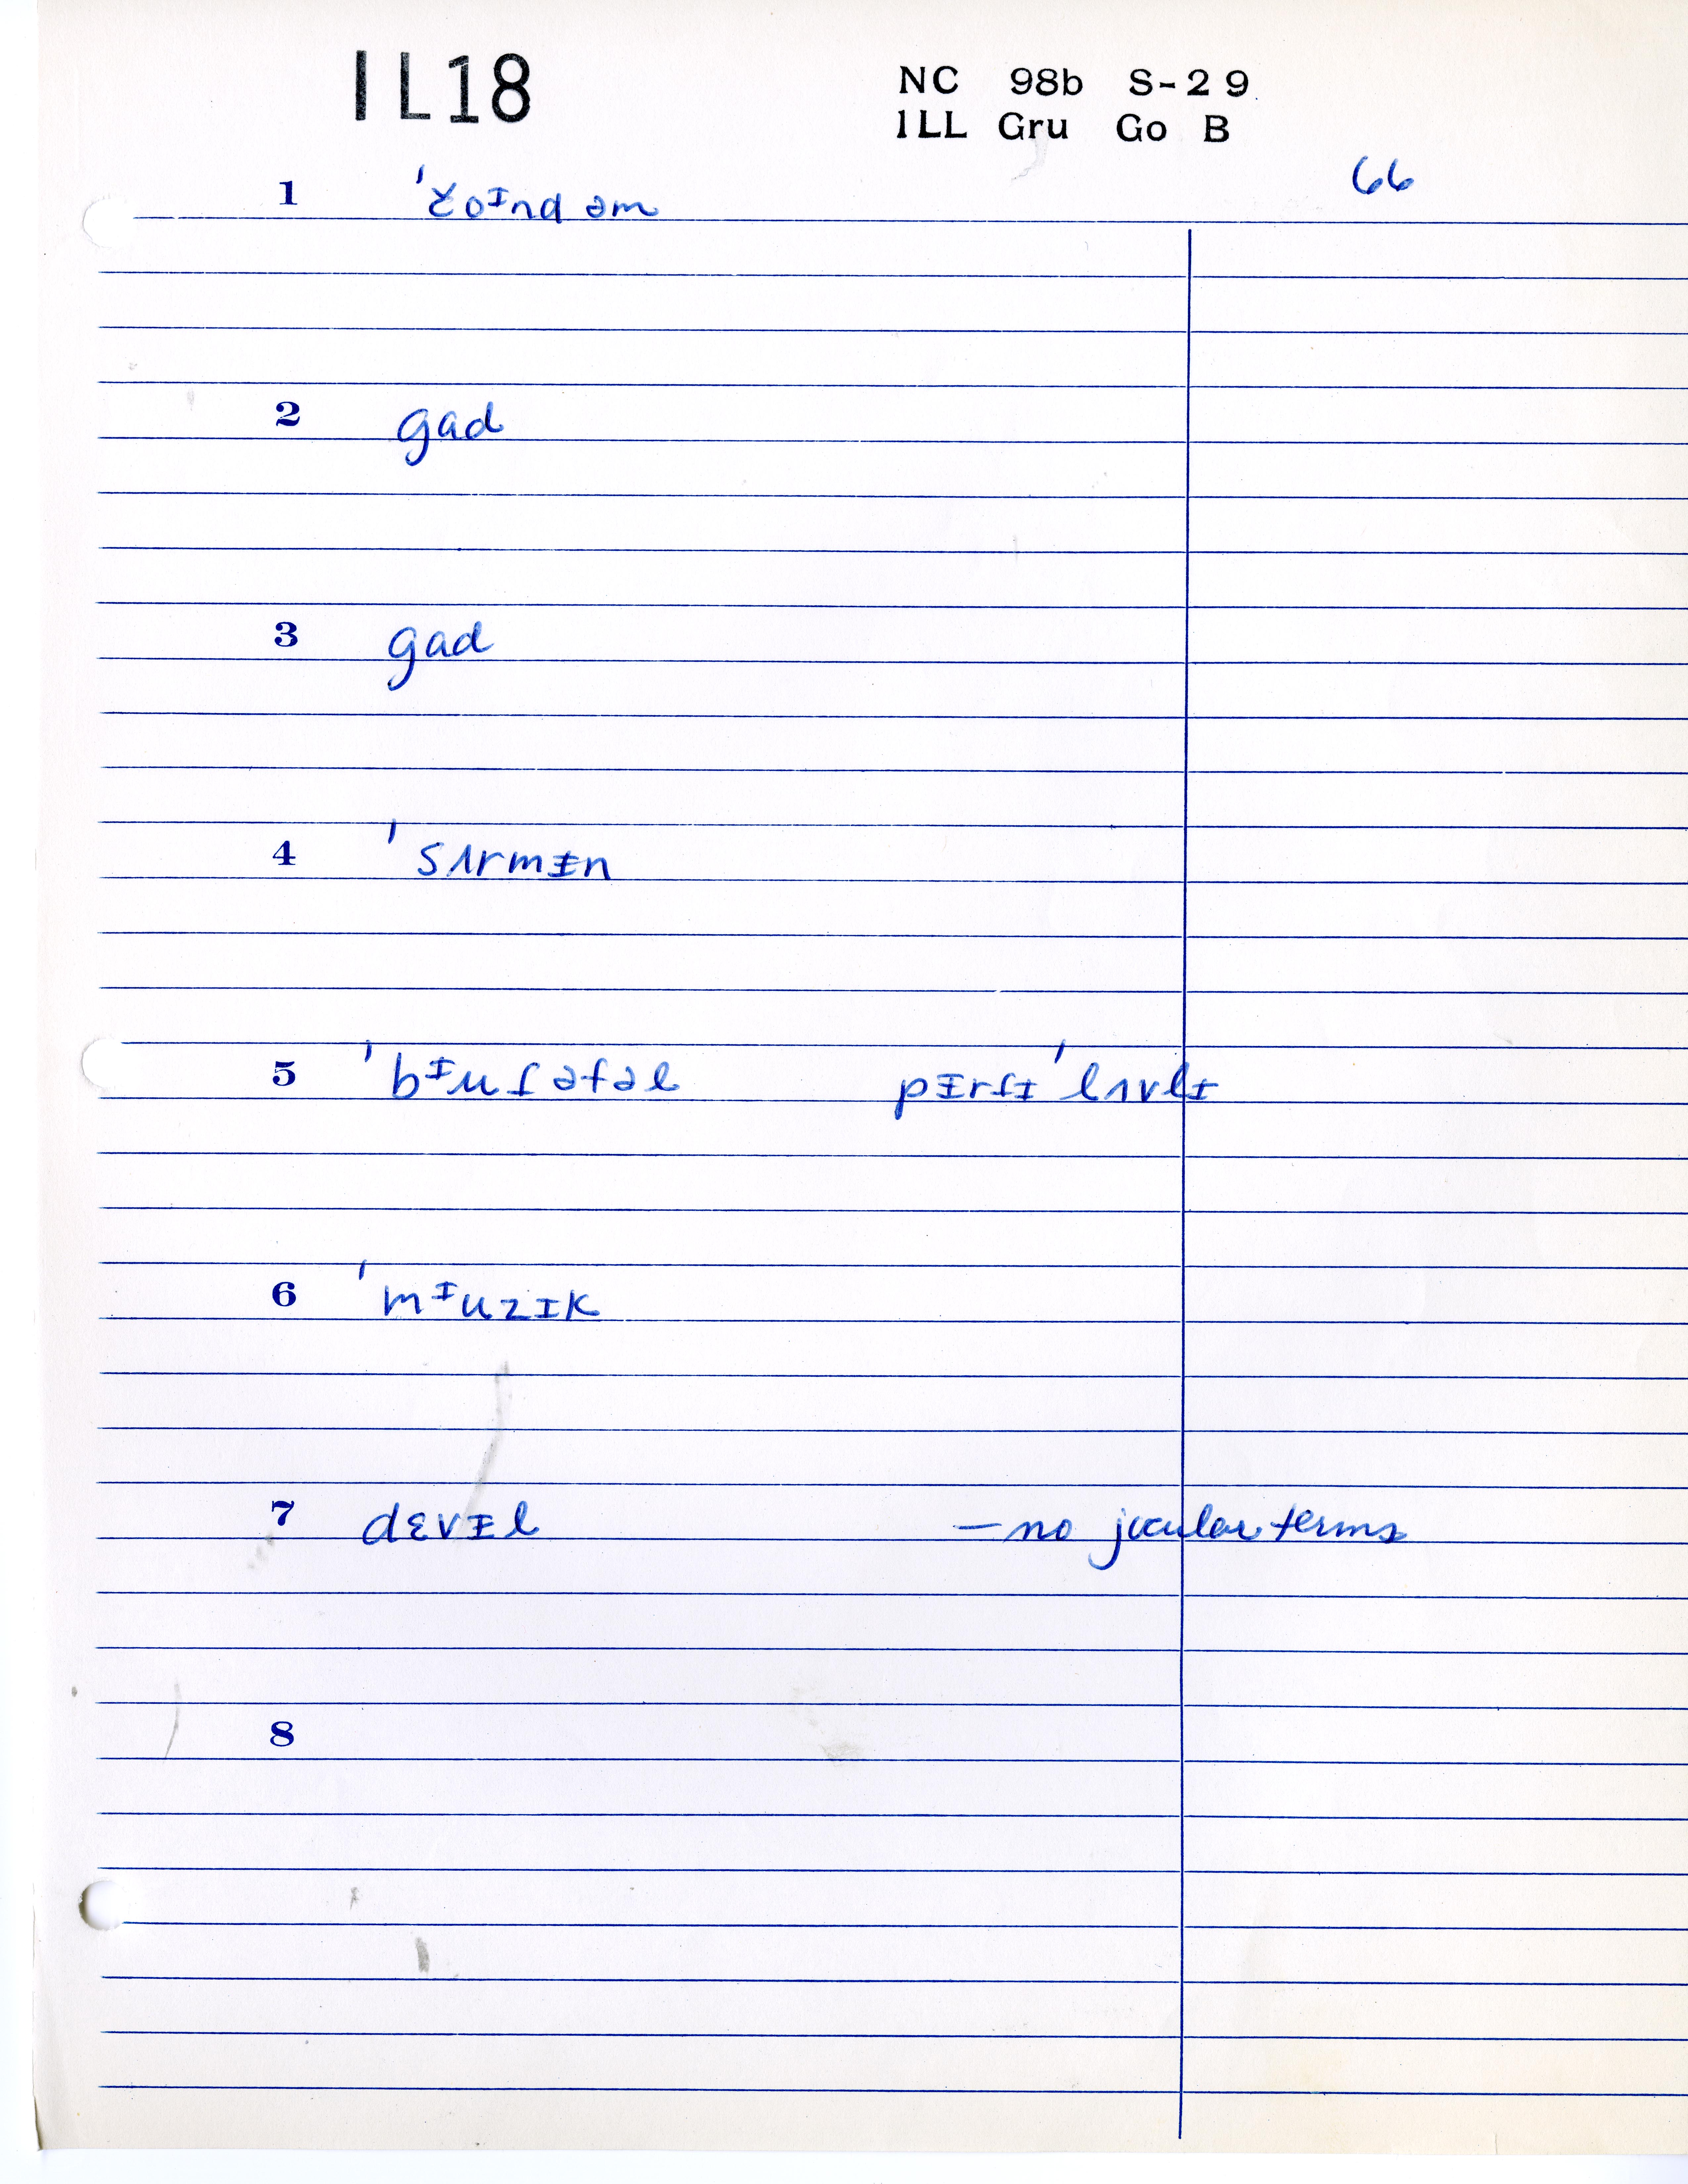 IL18
NC 98b S-29
ILL Gru Go B
66
1 'ǰoᶦnd əm
2 gad
3 gad
4 'sʌrmᵻn
5 'bᶦuɾəfəl pᵻrɾɪ'lʌvlɪ
6 'mᶦuzɪk
7 dɛvᵻl — no jocular terms
8